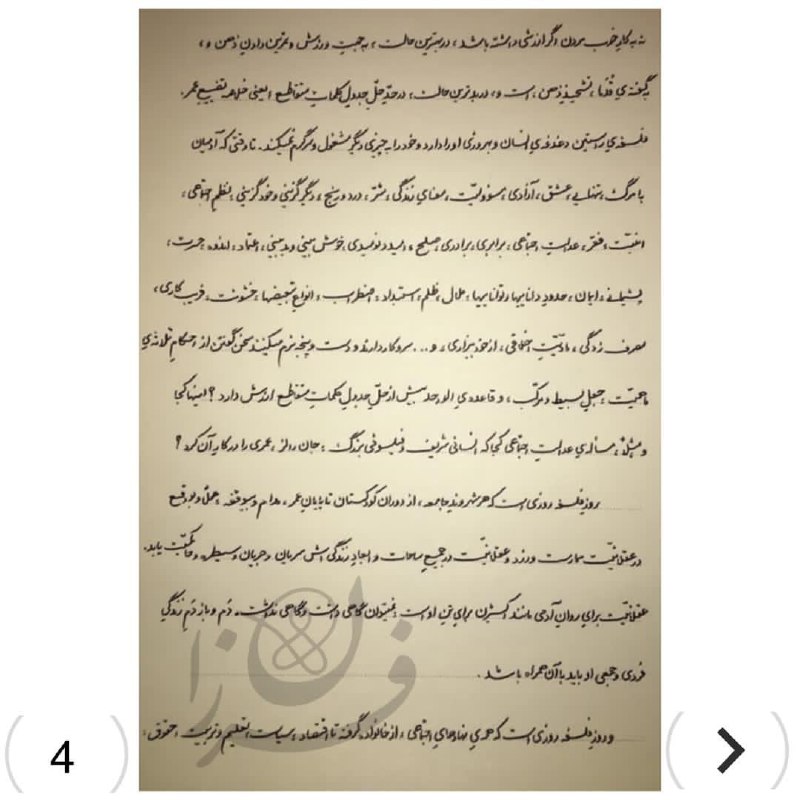 نه به کار خوب مردن اگر ارزشی داشته باشد ، در بهترین حالت ، به جهت ورزش و تمرین دادن ذهن و ،
به گفته‌ی قدما ، تشحیذ ذهن ، است و ، در بدترین حالت ، در حدّ حلّ جدول کلمات متقاطع ؛ یعنی خلاصه تضییع عمر .
فلسفه‌ی راستین دغدغه‌ی انسان و بهروزی او را دارد و خود را به چیزی دیگر مشغول و سرگرم نمیکند . تا وقتی که آدمیان
با مرگ ، تنهایی ، عشق ، آزادی ، مسؤولیّت ، معنای زندگی ، شرّ ، درد و رنج ، دیگرگزینی و خودگزینی ، نظم اجتماعی ،
امنیّت ، فقر ، عدالت اجتماعی ، برابری ، برادری ، صلح ، امید و نومیدی ، خوش بینی و بدبینی ، اعتماد ، اندوه ، حسرت ،
پشیمانی ، ایمان ، حدود داناییها و تواناییها ، ملال ، ظلم ، استبداد ، اضطراب ، انواع تبعیضها ، خشونت ، فریب کاری ،
مصرف زدگی ، مادّیّت اخلاقی ، از خود بیزاری ، و ... سر و کار دارند و دست و پنجه نرم میکنند سخن گفتن از احکام ثلاثه‌ی
ماهیّت ، جعل بسیط و مرکّب ، و قاعده‌ی الواحد بیش از حلّ جدول کلمات متقاطع ارزش دارد ؟ اینها کجا
و ، مثلاً ، مسأله‌ی عدالت اجتماعی کجا که انسانی شریف و فیلسوفی بزرگ ، جان رالز ، عمری را در کار آن کرد ؟
روز فلسفه روزی است که هر شهروند جامعه ، از دوران کودکستان تا پایان عمر ، مدام و بیوقفه ، عملاً و بواقع
در عقلانیّت ممارست ورزد و عقلانیّت در جمیع ساحات و ابعاد زندگی اش سریان و جریان و سیطره و حاکمیّت یابد .
عقلانیّت برای روان آدمی مانند اکسیژن برای تن او است ، نمیتوان گاهی داشت و گاهی نداشت . دم و باز دم زندگی
فردی و جمعی او باید با آن همراه باشد .
و روز فلسفه روزی است که همه‌ی نهادهای اجتماعی ، از خانواده گرفته تا اقتصاد ، سیاست ، تعلیم و تربیت ، حقوق ،
فرزان
4